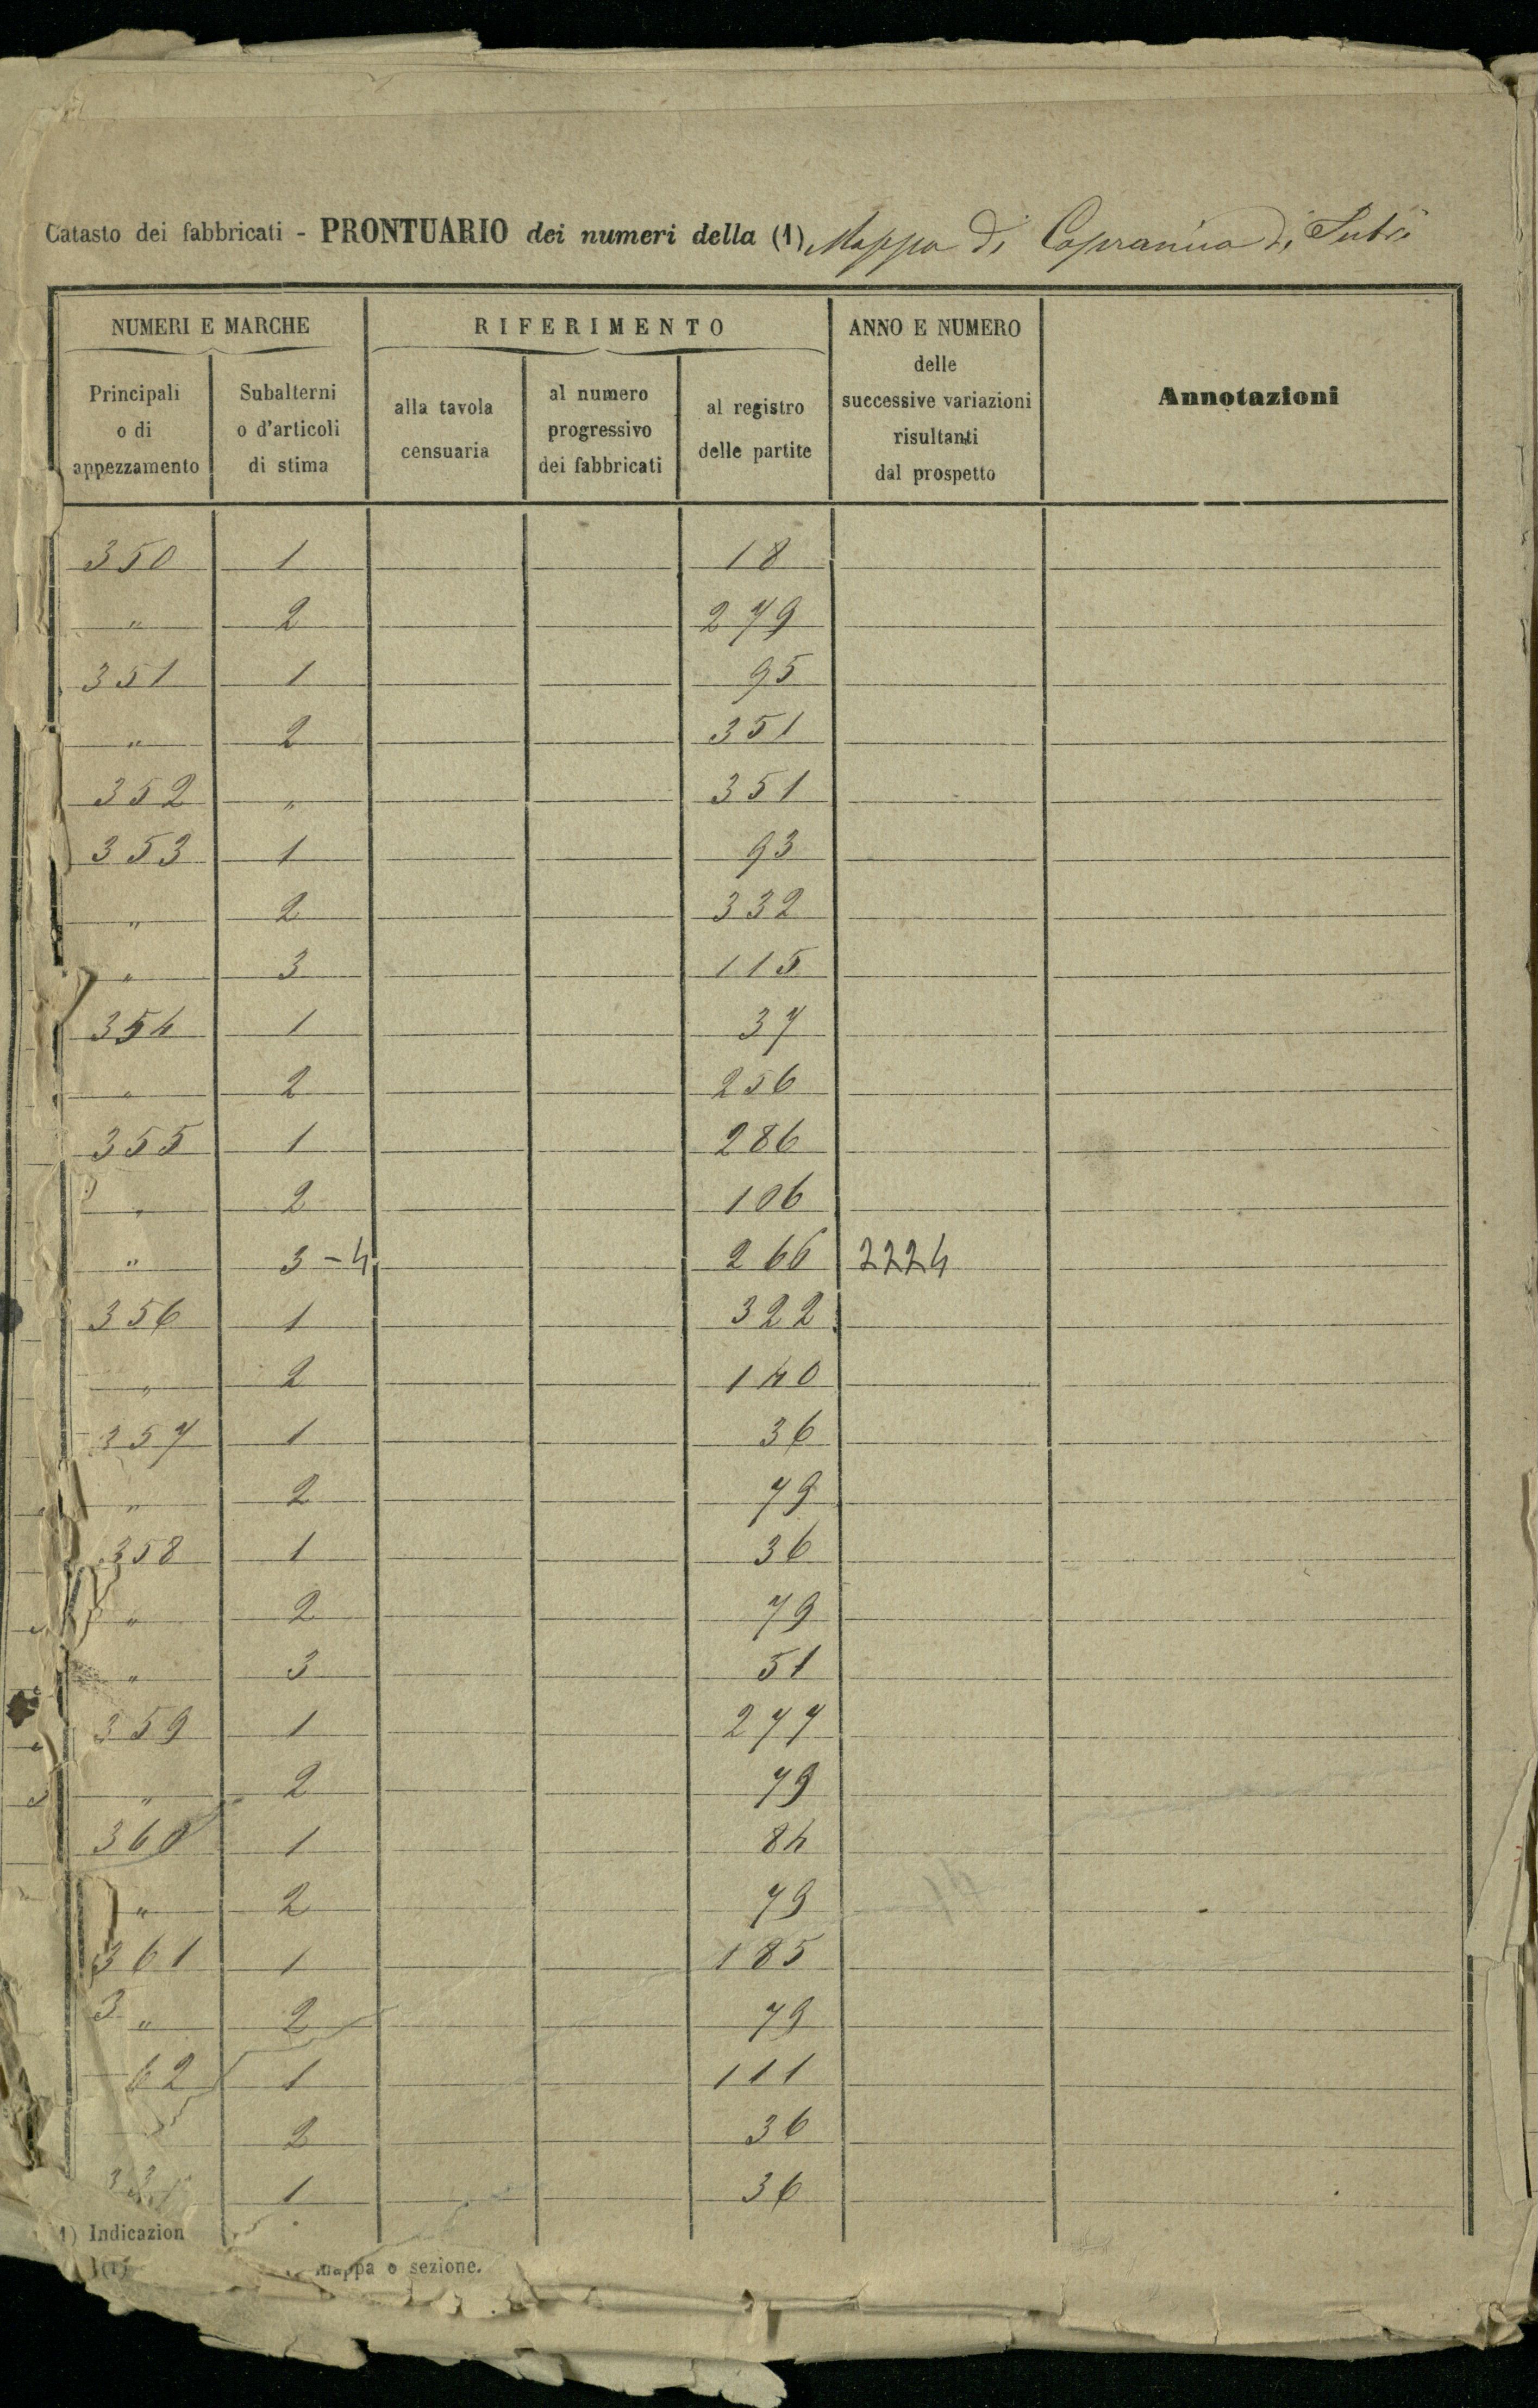 Catasto dei fabbricati - PRONTUARIO dei numeri della (1) Mappa di Capranica di Sutri
NUMERI E MARCHE RIFERIMENTO ANNO E NUMERO delle successive variazioni risultanti dal prospetto Annotazioni
Principali o di appezzamento Subalterni o d'articoli di stima alla tavola censuaria al numero progressivo dei fabbricati al registro delle partite
350 1 18
" 2 279
351 1 95
" 2 351
352 " 351
353 1 93
" 2 332
" 3 115
354 1 37
" 2 256
355 1 286
" 2 106
" 3-4 266 2224
356 1 322
" 2 140
357 1 36
" 2 79
358 1 36
" 2 79
" 3 51
359 1 277
" 2 79
360 1 84
" 2 79
361 1 185
3 " 2 79
62 1 111
2 36
1 36
1) Indicazion
(1) mappa o sezione.